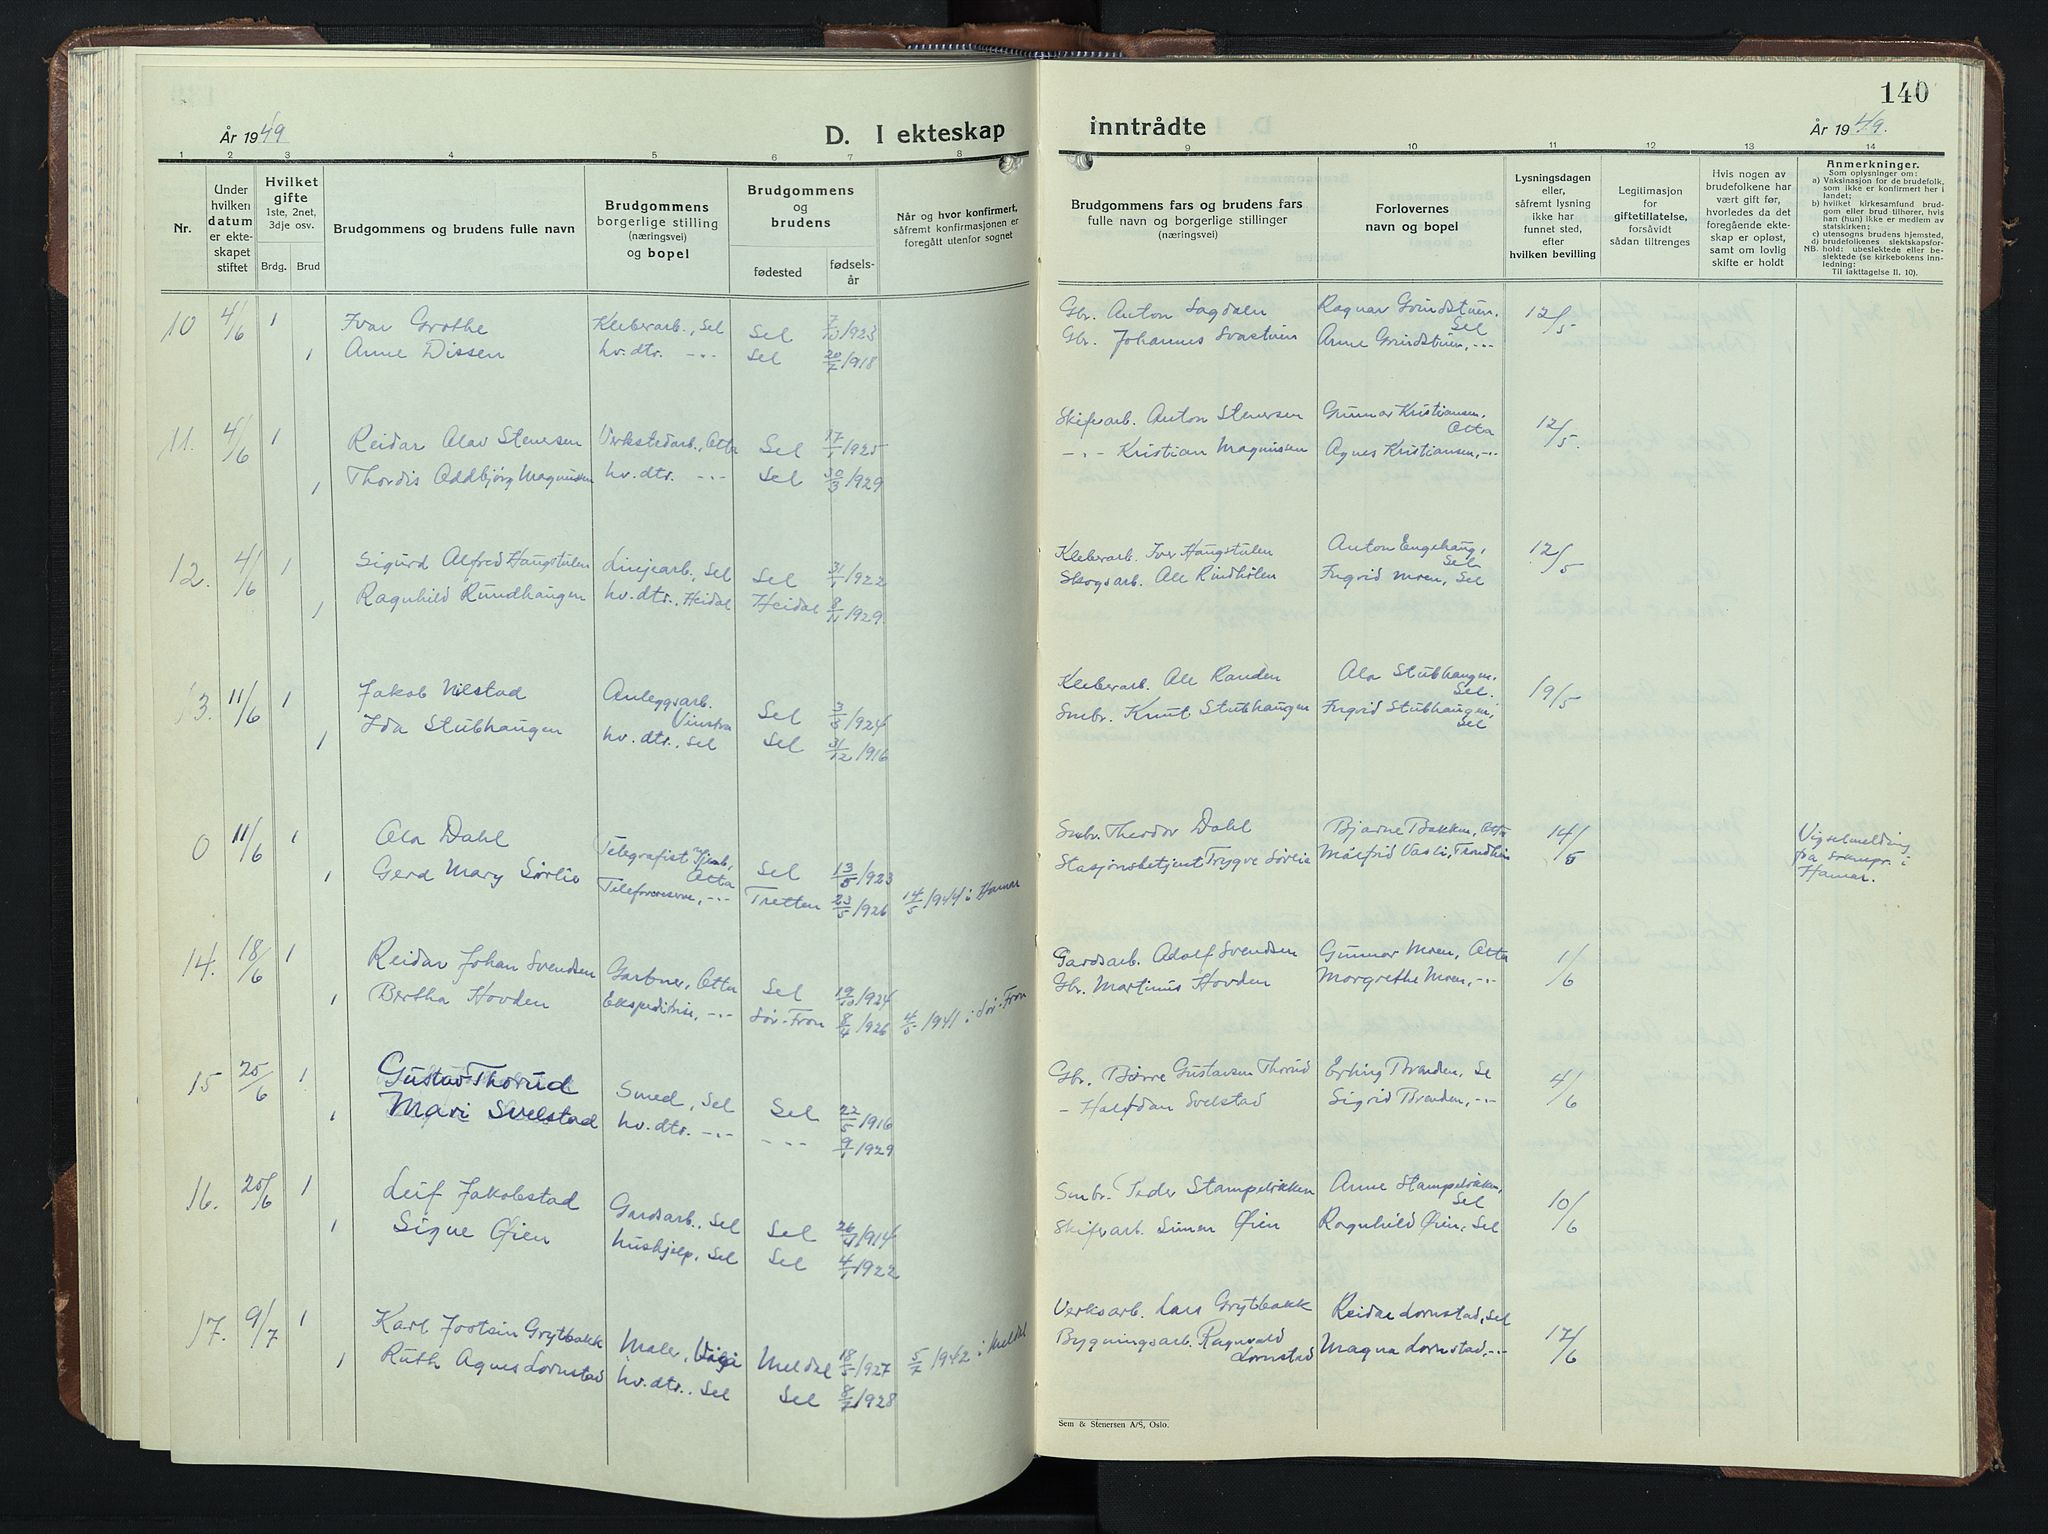 140
År 1949
D. I ekteskap
inntrådte
År 1949.
1 2 3 4 5 6 7 8 9 10 11 12 13 14
Nr.
Under hvilken datum er ekte-skapet stiftet
Hvilket gifte
1ste, 2net, 3dje osv.
Brdg. Brud
Brudgommens og brudens fulle navn
Brudgommens borgerlige stilling (næringsvei) og bopel
Brudgommens og brudens
fødested
fødsels-år
Når og hvor konfirmert, såfremt konfirmasjonen er foregått utenfor sognet
Brudgommens fars og brudens fars fulle navn og borgerlige stillinger (næringsvei)
Forlovernes navn og bopel
Lysningsdagen eller, såfremt lysning ikke har funnet sted, efter hvilken bevilling
Legitimasjon for giftetillatelse, forsåvidt sådan tiltrenges
Hvis nogen av brudefolkene har vært gift før, hvorledes da det foregående ekte-skap er opløst, samt om lovlig skifte er holdt
Anmerkninger.
Som oplysninger om:
a) Vaksinasjon for de brudefolk, som ikke er konfirmert her i landet;
b) hvilket kirkesamfund brud-gom eller brud tilhører, hvis han (hun) ikke er medlem av statskirken;
c) utensogns brudens hjemsted,
d) brudefolkenes slektskapsfor-
NB. hold: ubeslektede eller be-slektede (se kirkebokens inn-ledning:
Til iakttagelse II. 10).
10 4/6 1 Ivar Grothe Kleberarb., Sel Sel 1923 Gbr. Anton Sagdalen Ragnar Grindstuen, Sel 12/5
1 Anne Dissen hv.dtr. -"- Sel 20/7 1918 Gbr. Johannes Svastuen Anne Grindstuen, -"-
11. 4/6 1 Reidar Olav Stenersen Verkstedarb., Otta Sel 17/1 1925 Skifarb. Anton Stenersen Gunnar Kristiansen, Otta 12/5.
1 Thordis Oddbjørg Magnussen hv.dtr. -"- Sel 30/3 1929 -"- Kristian Magnussen Agnes Kristiansen, -"-
12. 4/6 1 Sigurd Alfred Haugstulen Linjearb., Sel Sel 31/1 1922 Kleberarb. Iver Haugstulen Anton Engehaug, Sel 12/5
1 Ragnhild Rundhaugen hv.dtr., Heidal Heidal 8/11 1929. Skogsarb. Ole Rindhølen Ingrid Moen, Sel
13. 11/6 1 Jakob Vilstad Anleggsarb. Vinstra Sel 3/3 1924 Kleberarb. Ole Randen Ola Stubhaugen, Sel. 19/5
1 Ida Stubhaugen hv.dtr., Sel Sel 31/12 1916 Smbr. Knut Stubhaugen Ingrid Stubhaugen, Sel
0 11/6 1 Ola Dahl Telegrafist Otta Sel 13/5 1923 Smbr. Theodor Dahl Bjarne Bakken, Otta 14/5 Vigselmelding fra sognepr. i Hamar.
1 Gerd Mary Sørlie -"- Tretten 23/5 1926 14/5 1944 i Hamar Stasjonsbetjent Trygve Sørlie Målfrid Vasli, Trondheim
14. 18/6 1 Reidar Johan Svendsen Gartner, Otta Sel 19/10 1924 Gardsarb. Adolf Svendsen Gunnar Moen, Otta 1/6
1 Bertha Hovden Ekspeditrise, -"- Sør-Fron 8/4 1926 4/5 1941 i Sør-Fron Gbr. Martinus Hovden Margrethe Moen, -"-
15 25/6 1 Gustav Thorud Smed, Sel Sel 22/5 1916 Gbr. Børre Gustavsen Thorud Erling Brenden, Se 4/6
1 Mari Svelstad hv.dtr. -"- -"- 9/1 1929 - Halvdan Svelstad Sigrid Brenden, -"-
16. 25/6 1 Leif Jakobstad Gardsarb., Sel Sel 1914 Smbr. Peder Stampeløkken Anne Stampeløkken, Sel 10/6
1 Signe Øien hushjelp, Sel Sel 4/1 1922 Skifarb. Simen Øien Ragnhild Øien, Sel
17. 9/7 1 Karl Jostein Grytbakk Maler, Vågå Meldal 18/5 1927 5/7 1942 i Meldal Verksarb. Lars Grytbakk Reidar Lornstad, Sel 17/6
1 Ruth Agnes Lornstad hv.dtr., Sel Sel 1928 Bygningsarb. Ragnvald Lornstad Magna Lornstad, -"-
Sem & Stenersen A/S, Oslo.